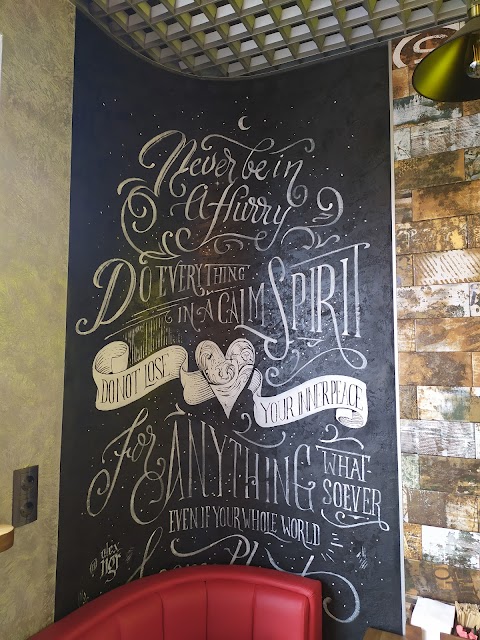 Never be in
a Hurry
DO EVERYTHING
IN A CALM
SPIRIT
DO NOT LOSE
YOUR INNER PEACE
For
ANYTHING
WHAT-
SOEVER
EVEN IF YOUR WHOLE WORLD
@alex
ngr